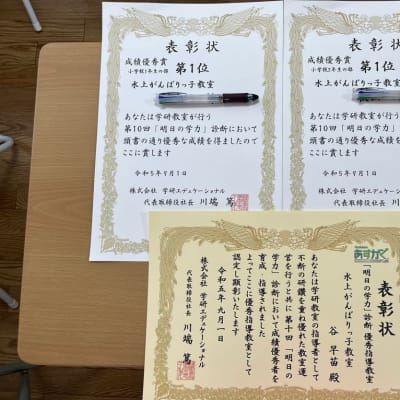 表彰状
成績優秀賞
小学校1年生の部
第1位
水上がんばりっ子教室
あなたは学研教室が行う
第10回「明日の学力」診断において
頭書の通り優秀な成績を得ましたので
ここに賞します
令和5年9月1日
株式会社 学研エデュケーショナル
代表取締役社長 川端 篤
表彰状
成績優秀賞
小学校2年生の部
第1位
水上がんばりっ子教室
あなたは学研教室が行う
第10回「明日の学力」診断
頭書の通り優秀な成績を得
ここに賞します
令和5年9月1日
株式会社 学研エデュケーショナル
代表取締役社長 川端
あすがく
表彰状
「明日の学力」診断 優秀指導教室
水上がんばりっ子教室
谷 早苗 殿
あなたは学研教室の指導者として
不断の研鑽を重ね優れた教室運
営を行うと共に第十回「明日の
学力」診断において成績優秀者を
育成・指導されました
よってここに優秀指導教室として
認定し顕彰いたします
令和五年九月一日
株式会社 学研エデュケーショナル
代表取締役社長 川端 篤